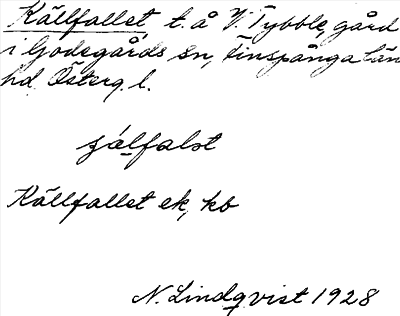 Källfallet t. å V. Tybble, gård
i Godegårds sn, Finspånga län
hd Österg. l.
ʂálfalət
Källfallet ek, kb
N. Lindqvist 1928